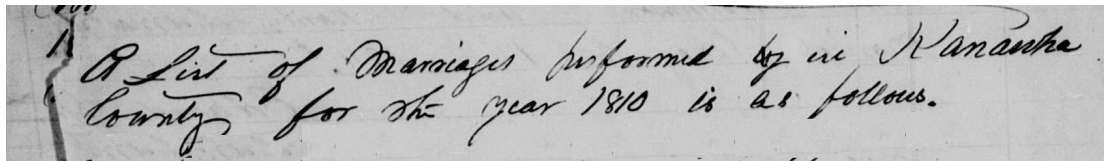 A List of Marriages performed by in Kanawha
County for the year 1810 is as follows.